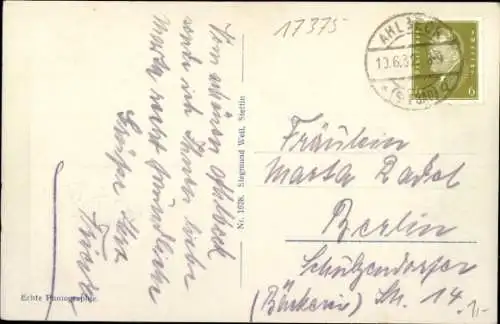 17375
AHLBECK
10.6.3
6
Vom schönen Ahlbeck
sende ich Ihnen liebe
Marta recht freundliche
Grüße. Herz
Nr. 1628. Siegmund Weil, Stettin
Fräulein
Marta Radol
Berlin
Schulzendorfer
(Bäckerei) Str. 14.
1,-
Echte Photographie.